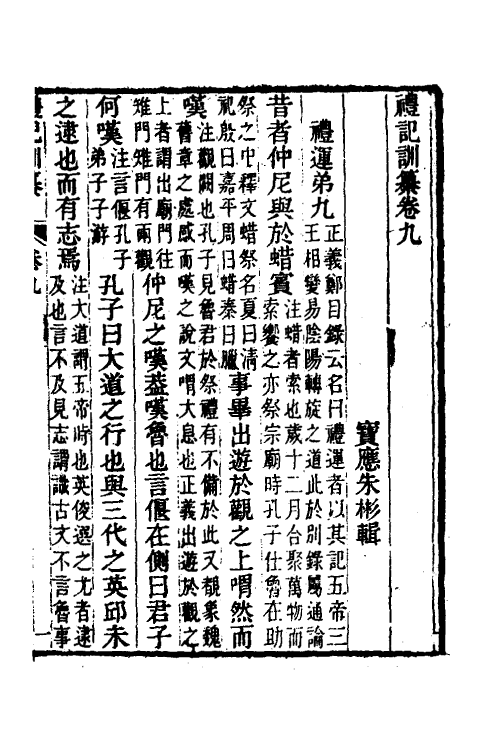 禮記訓纂卷九
寶應朱彬輯
禮運弟九
正義鄭目錄云名曰禮運者以其記五帝三
王相變易陰陽轉旋之道此於別錄屬通論
昔者仲尼與於蜡賓
注蜡者索也歲十二月合聚萬物而
索饗之亦祭宗廟時孔子仕魯在助
祭之中釋文蜡祭名夏曰清
祀殷曰嘉平周曰蜡秦曰臘
事畢出遊於觀之上喟然而
嘆
注觀闕也孔子見魯君於祭禮有不備於此又覩象魏
舊章之處感而嘆之說文喟大息也正義出遊於觀之
上者謂出廟門往
雉門雉門有兩觀
仲尼之嘆葢嘆魯也言偃在側曰君子
何嘆
注言偃孔子
弟子子游
孔子曰大道之行也與三代之英邱未
之逮也而有志焉
注大道謂五帝時也英俊選之尤者逮
及也言不及見志謂識古文不言魯事
禮記訓纂
卷九
一